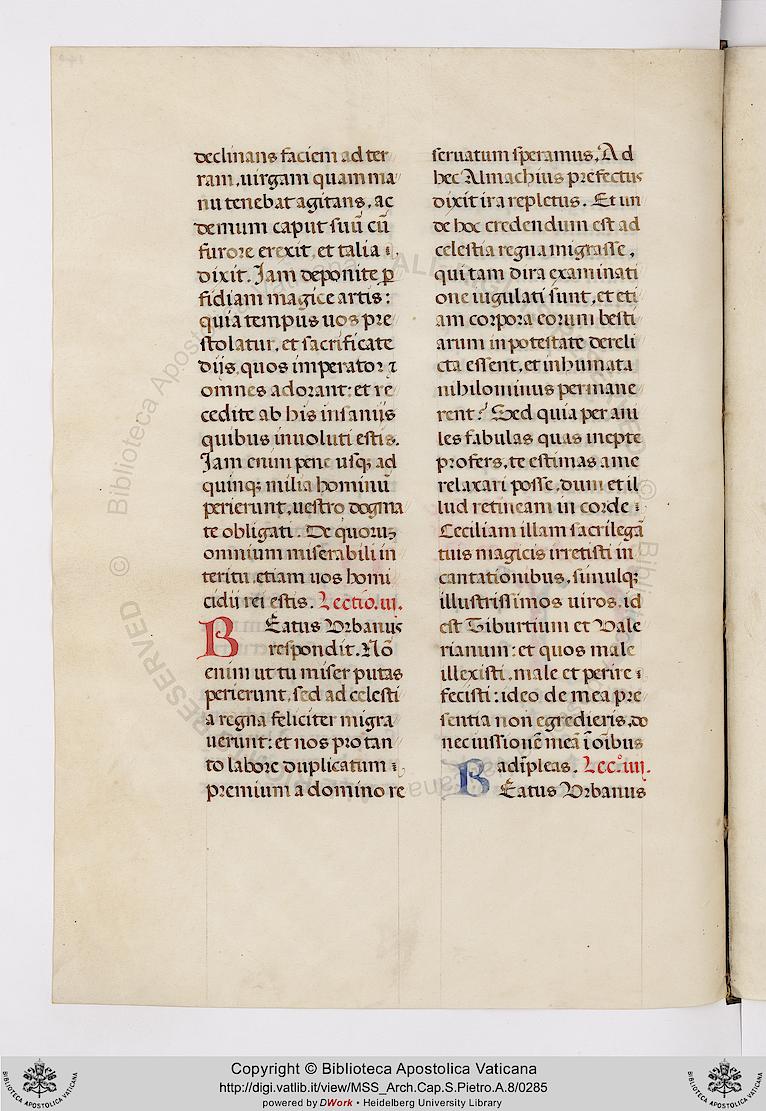 declinans faciem ad ter
ram, uirgam quam ma
nu tenebat agitans, ac
demum caput suū cū
furore erexit, et talia
dixit. Jam deponite ꝑ
fidiam magice artis:
quia tempus uos pre
stolatur, et sacrificate
diis, quos imperator ⁊
omnes adorant: et re
cedite ab his insaniis
quibus inuoluti estis.
Jam enim pene usqꝫ ad
quinqꝫ milia hominū
perierunt, uestro dogma
te obligati. De quoruꝫ
omnium miserabili in
teritu etiam uos homi
cidii rei estis. Lectio. iii.
Beatus Urbanus
respondit. Nō
enim ut tu miser putas
perierunt, sed ad celesti
a regna feliciter migra
uerunt: et nos pro tan
to labore duplicatum
premium a domino re
seruatum speramus. Ad
hec Almachius prefectus
dixit ira repletus. Et un
de hoc credendum est ad
celestia regna migrasse,
qui tam dira examinati
one iugulati sunt, et eti
am corpora eorum besti
arum in potestate dereli
cta essent, et inhumata
nihilominus permane
rent? Sed quia per ani
les fabulas quas inepte
profers, te estimas a me
relaxari posse, dum et il
lud retineam in corde
Ceciliam illam sacrilegā
tuis magicis irretisti in
cantationibus, simulqꝫ
illustrissimos uiros, id
est Tiburtium et Vale
rianum: et quos male
illexisti, male et perire
fecisti: ideo de mea pre
sentia non egredieris, do
nec iussionē meā ī oībus
adīpleas. Lec.° iiii.
Beatus Urbanus
© Biblioteca Apostolica Vaticana
ALL RIGHTS RESERVED
Copyright © Biblioteca Apostolica Vaticana
http://digi.vatlib.it/view/MSS_Arch.Cap.S.Pietro.A.8/0285
powered by DWork • Heidelberg University Library
BIBLIOTECA APOSTOLICA VATICANA
BIBLIOTECA APOSTOLICA VATICANA